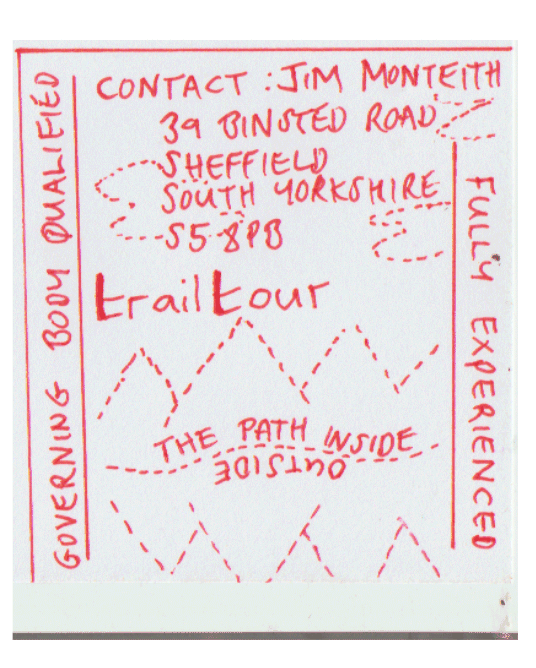 CONTACT : JIM MONTEITH
39 BINSTED ROAD
SHEFFIELD
SOUTH YORKSHIRE
S5 8PB
trailtour
THE PATH INSIDE
OUTSIDE
GOVERNING BODY QUALIFIED
FULLY EXPERIENCED